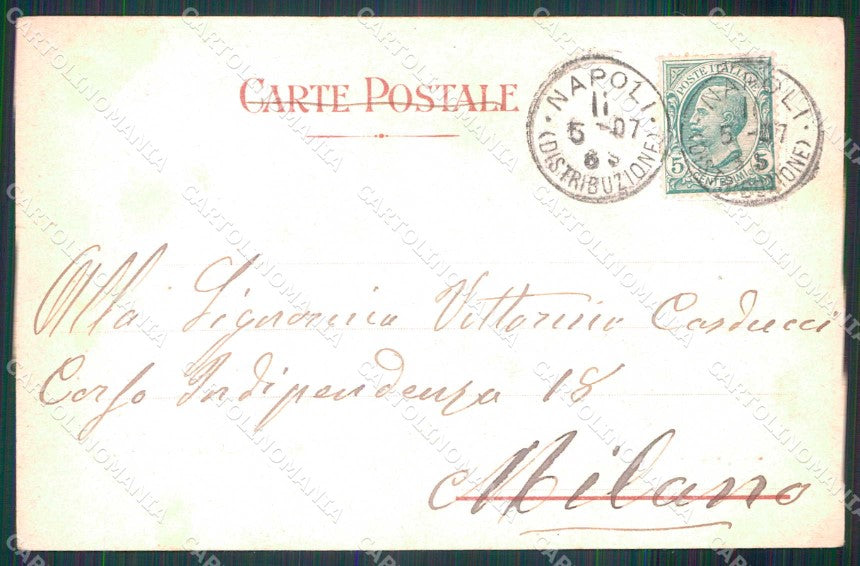 CARTE POSTALE
NAPOLI
11
5 - 07
(DISTRIBUZIONE)
POSTE ITALIANE
5 5
CENTESIMI
NAPOLI
11
5 - 07
Alla Signorina Vittorina Carducci
Corso Indipendenza 18
Milano
CARTOLINOMANIA